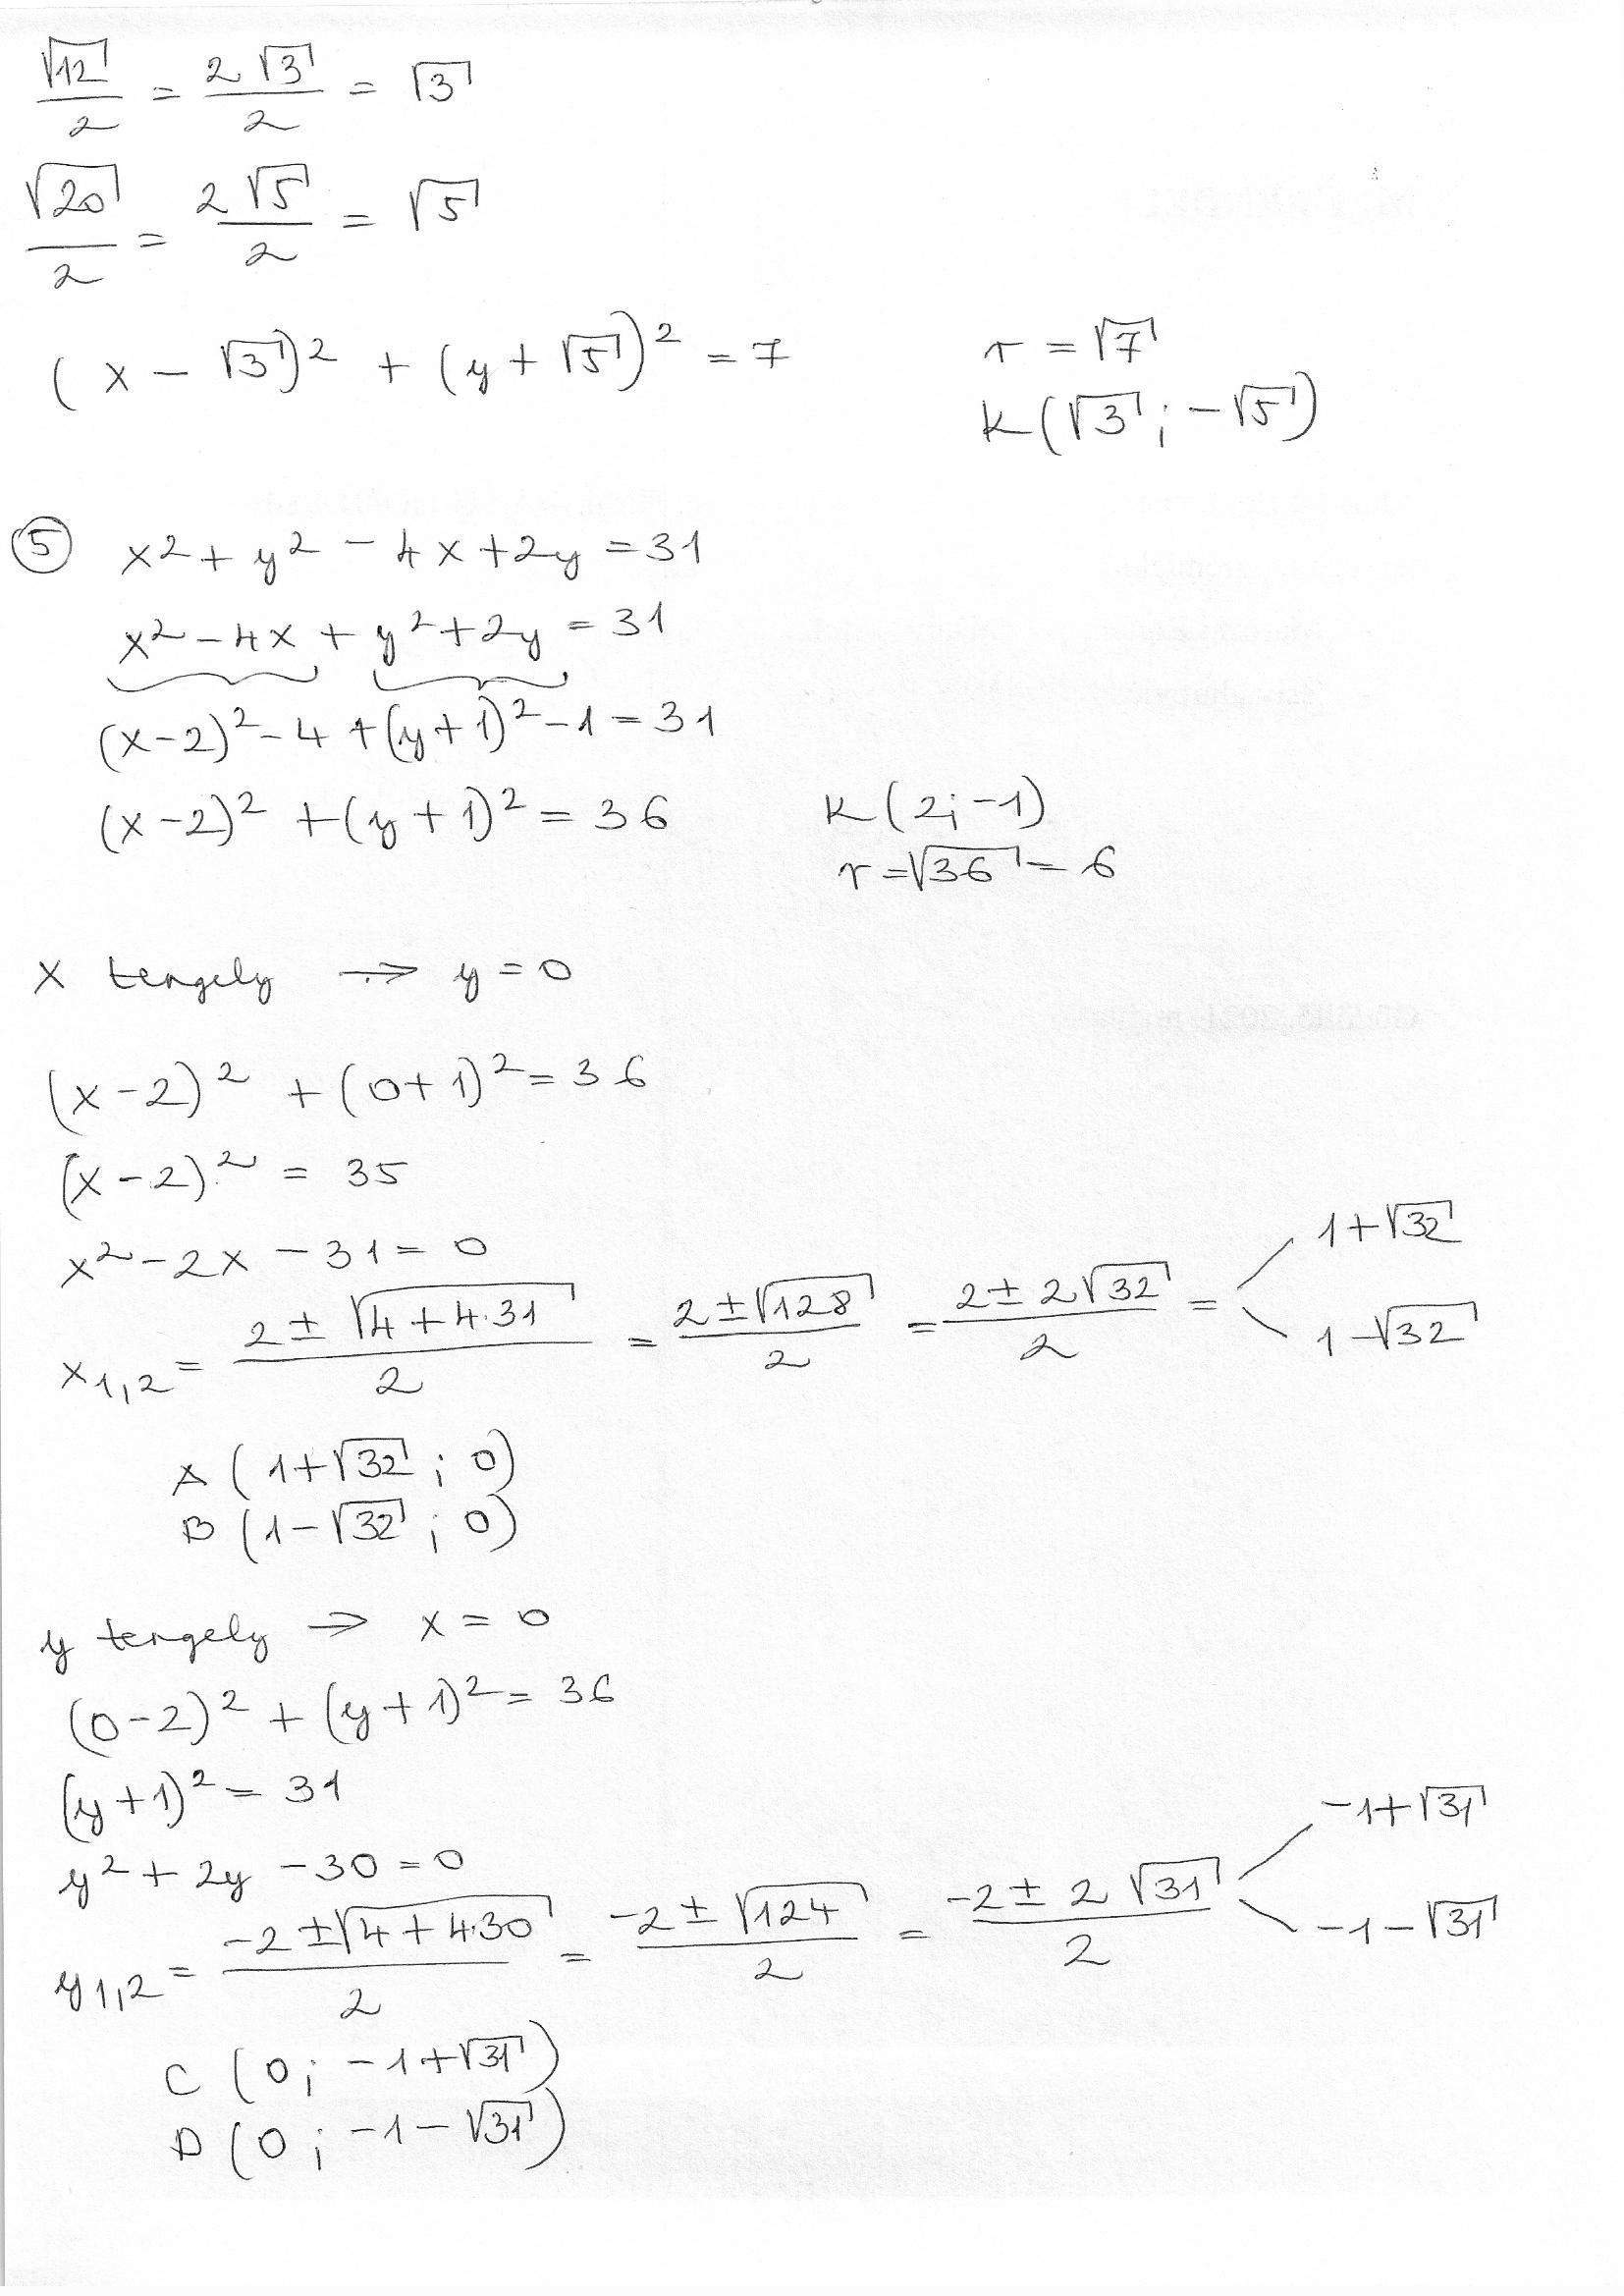 √12/2 = 2√3/2 = √3
√20/2 = 2√5/2 = √5
(x - √3)² + (y + √5)² = 7
r = √7
K(√3; -√5)
⑤ x² + y² - 4x + 2y = 31
x² - 4x + y² + 2y = 31
(x-2)² - 4 + (y+1)² - 1 = 31
(x-2)² + (y+1)² = 36
K(2; -1)
r = √36 = 6
x tengely → y = 0
(x-2)² + (0+1)² = 36
(x-2)² = 35
x² - 2x - 31 = 0
x1,2 = (2 ± √(4+4·31))/2 = (2 ± √128)/2 = (2 ± 2√32)/2 =
1+√32
1-√32
A (1+√32; 0)
B (1-√32; 0)
y tengely → x = 0
(0-2)² + (y+1)² = 36
(y+1)² = 31
y² + 2y - 30 = 0
y1,2 = (-2 ± √(4+4·30))/2 = (-2 ± √124)/2 = (-2 ± 2√31)/2
-1+√31
-1-√31
C (0; -1+√31)
D (0; -1-√31)